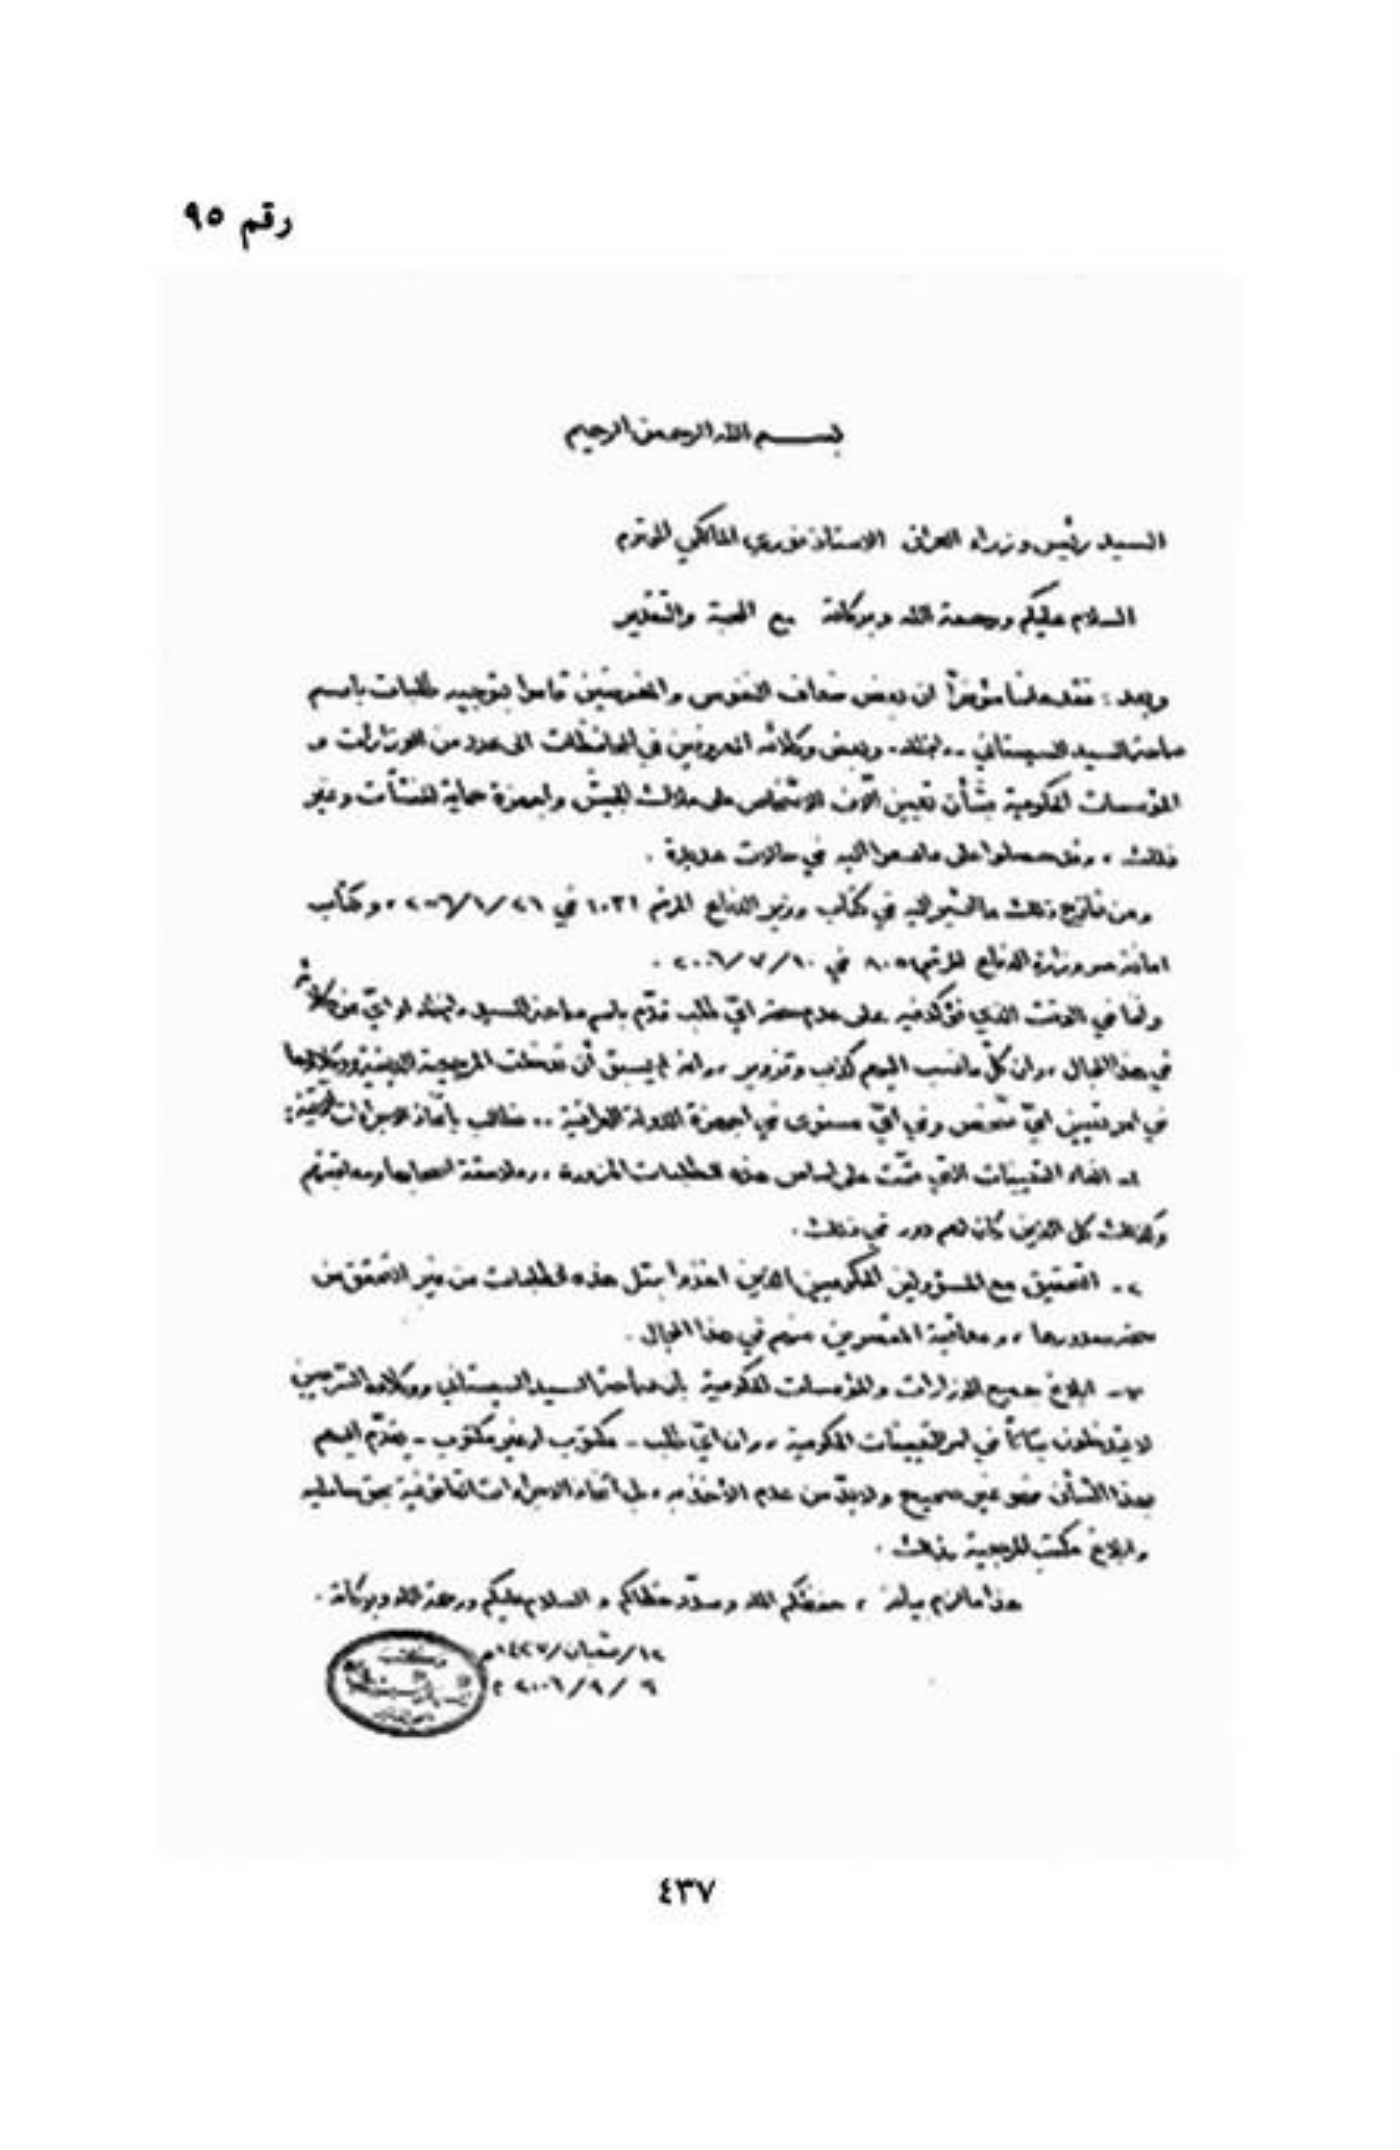 رقم ٩٥
بسم الله الرحمن الرحيم
السيد رئيس وزراء العراق الاستاذ نوري المالكي المحترم
السلام عليكم ورحمة الله وبركاته مع المحبة والتقدير
وبعد : فقد علمنا مؤخراً ان بعض ضعاف النفوس والمغرضين قاموا بتوجيه طلبات باسم
سماحة السيد السيستاني .. وبعض وكلائه المعروفين في المحافظات الى عدد من الوزارات و
المؤسسات الحكومية بشأن تعيين آلاف الاشخاص على ملاك الجيش واجهزة حماية المنشآت وغير
ذلك ، وقد حصلوا على ما سعوا اليه في حالات عديدة .
ومن نماذج ذلك ما اشير اليه في كتاب وزير الدفاع المرقم ١٠٣١ في ٢٠٠٦/١/٢١ ، وكتاب
امانة سر وزارة الدفاع المرقم ٨٠٥١ في ٢٠٠٦/٧/١٠ .
واننا في الوقت الذي نؤكد فيه على عدم صحة ايّ طلب قدّم باسم سماحة السيد او ايّ من وكلائه
في هذا المجال ، وان كلّ ما نسب اليهم كذب وتزوير ، وانه لم يسبق أن تدخلت المرجعية الدينية ووكلاؤها
في امر تعيين ايّ شخص وفي ايّ مستوى في اجهزة الدولة العراقية .. نطالب باتخاذ الاجراءات التالية :
١ـ الغاء التعيينات التي تمّت على اساس هذه الطلبات المزورة ، وملاحقة اصحابها ومعاقبتهم
وكذلك كل الذين كان لهم دور في ذلك .
٢ـ التحقيق مع المسؤولين الحكوميين الذين اخذوا بمثل هذه الطلبات من غير التحقق من
صحة صدورها ، ومعاقبة المقصرين منهم في هذا المجال .
٣ـ ابلاغ جميع الوزارات والمؤسسات الحكومية بأن سماحة السيد السيستاني ووكلاءه الشرعيين
لا يتدخلون بتاتاً في امر التعيينات الحكومية ، وان ايّ طلب ـ مكتوب او غير مكتوب ـ يقدّم اليهم
بهذا الشأن فهو غير صحيح ولابدّ من عدم الأخذ به ، بل اتخاذ الاجراءات القانونية بحق حامليه
وابلاغ مكتب المرجعية بذلك .
هذا ما لزم بيانه ، حفظكم الله وسدّد خطاكم والسلام عليكم ورحمة الله وبركاته .
١٢/شعبان/١٤٢٧هـ
٦ /٩ /٢٠٠٦م
٤٣٧